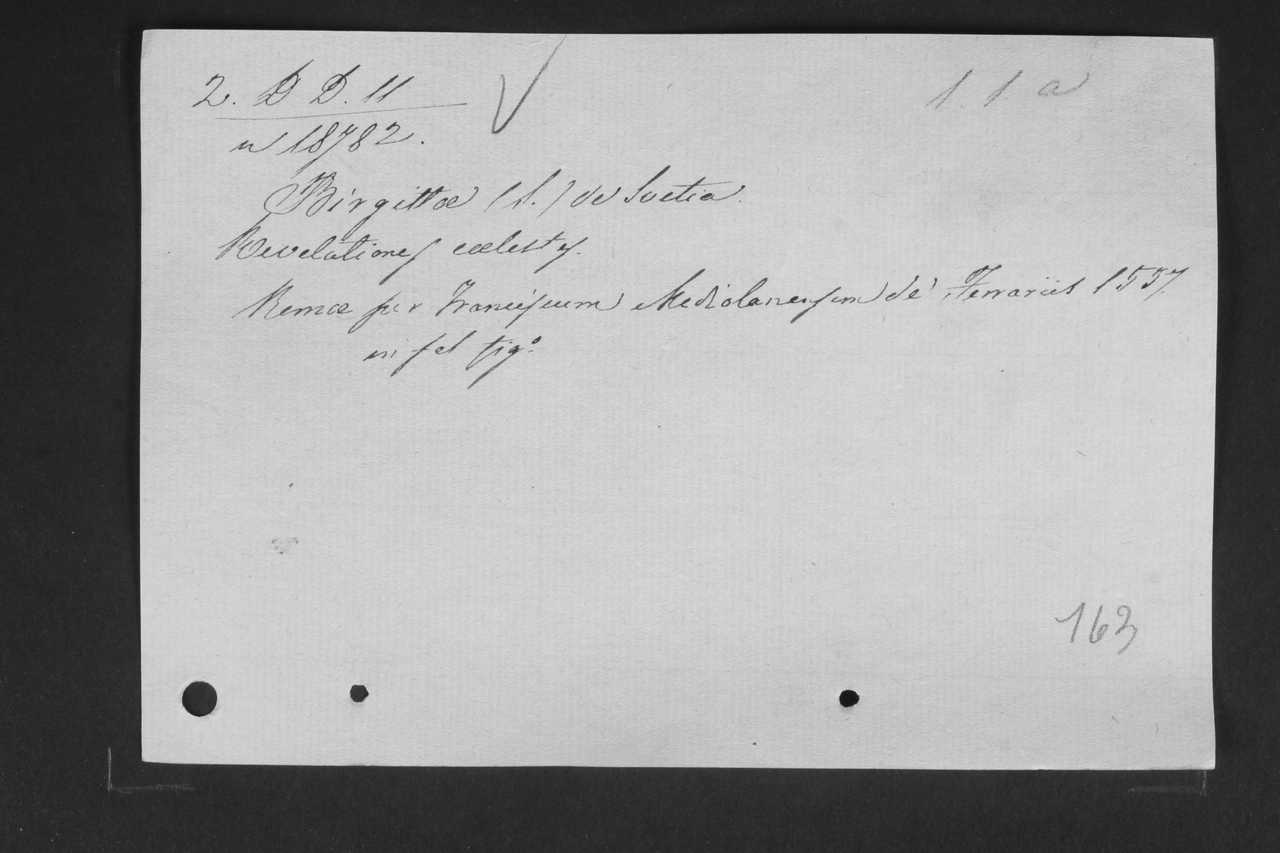 2. D D. 11
1 1 a
n 18782.
Birgittæ (S.) de Suetia.
Revelationes cœlestes.
Romæ per Franciscum Mediolanensem de Ferrariis 1557
in fol figº.
163